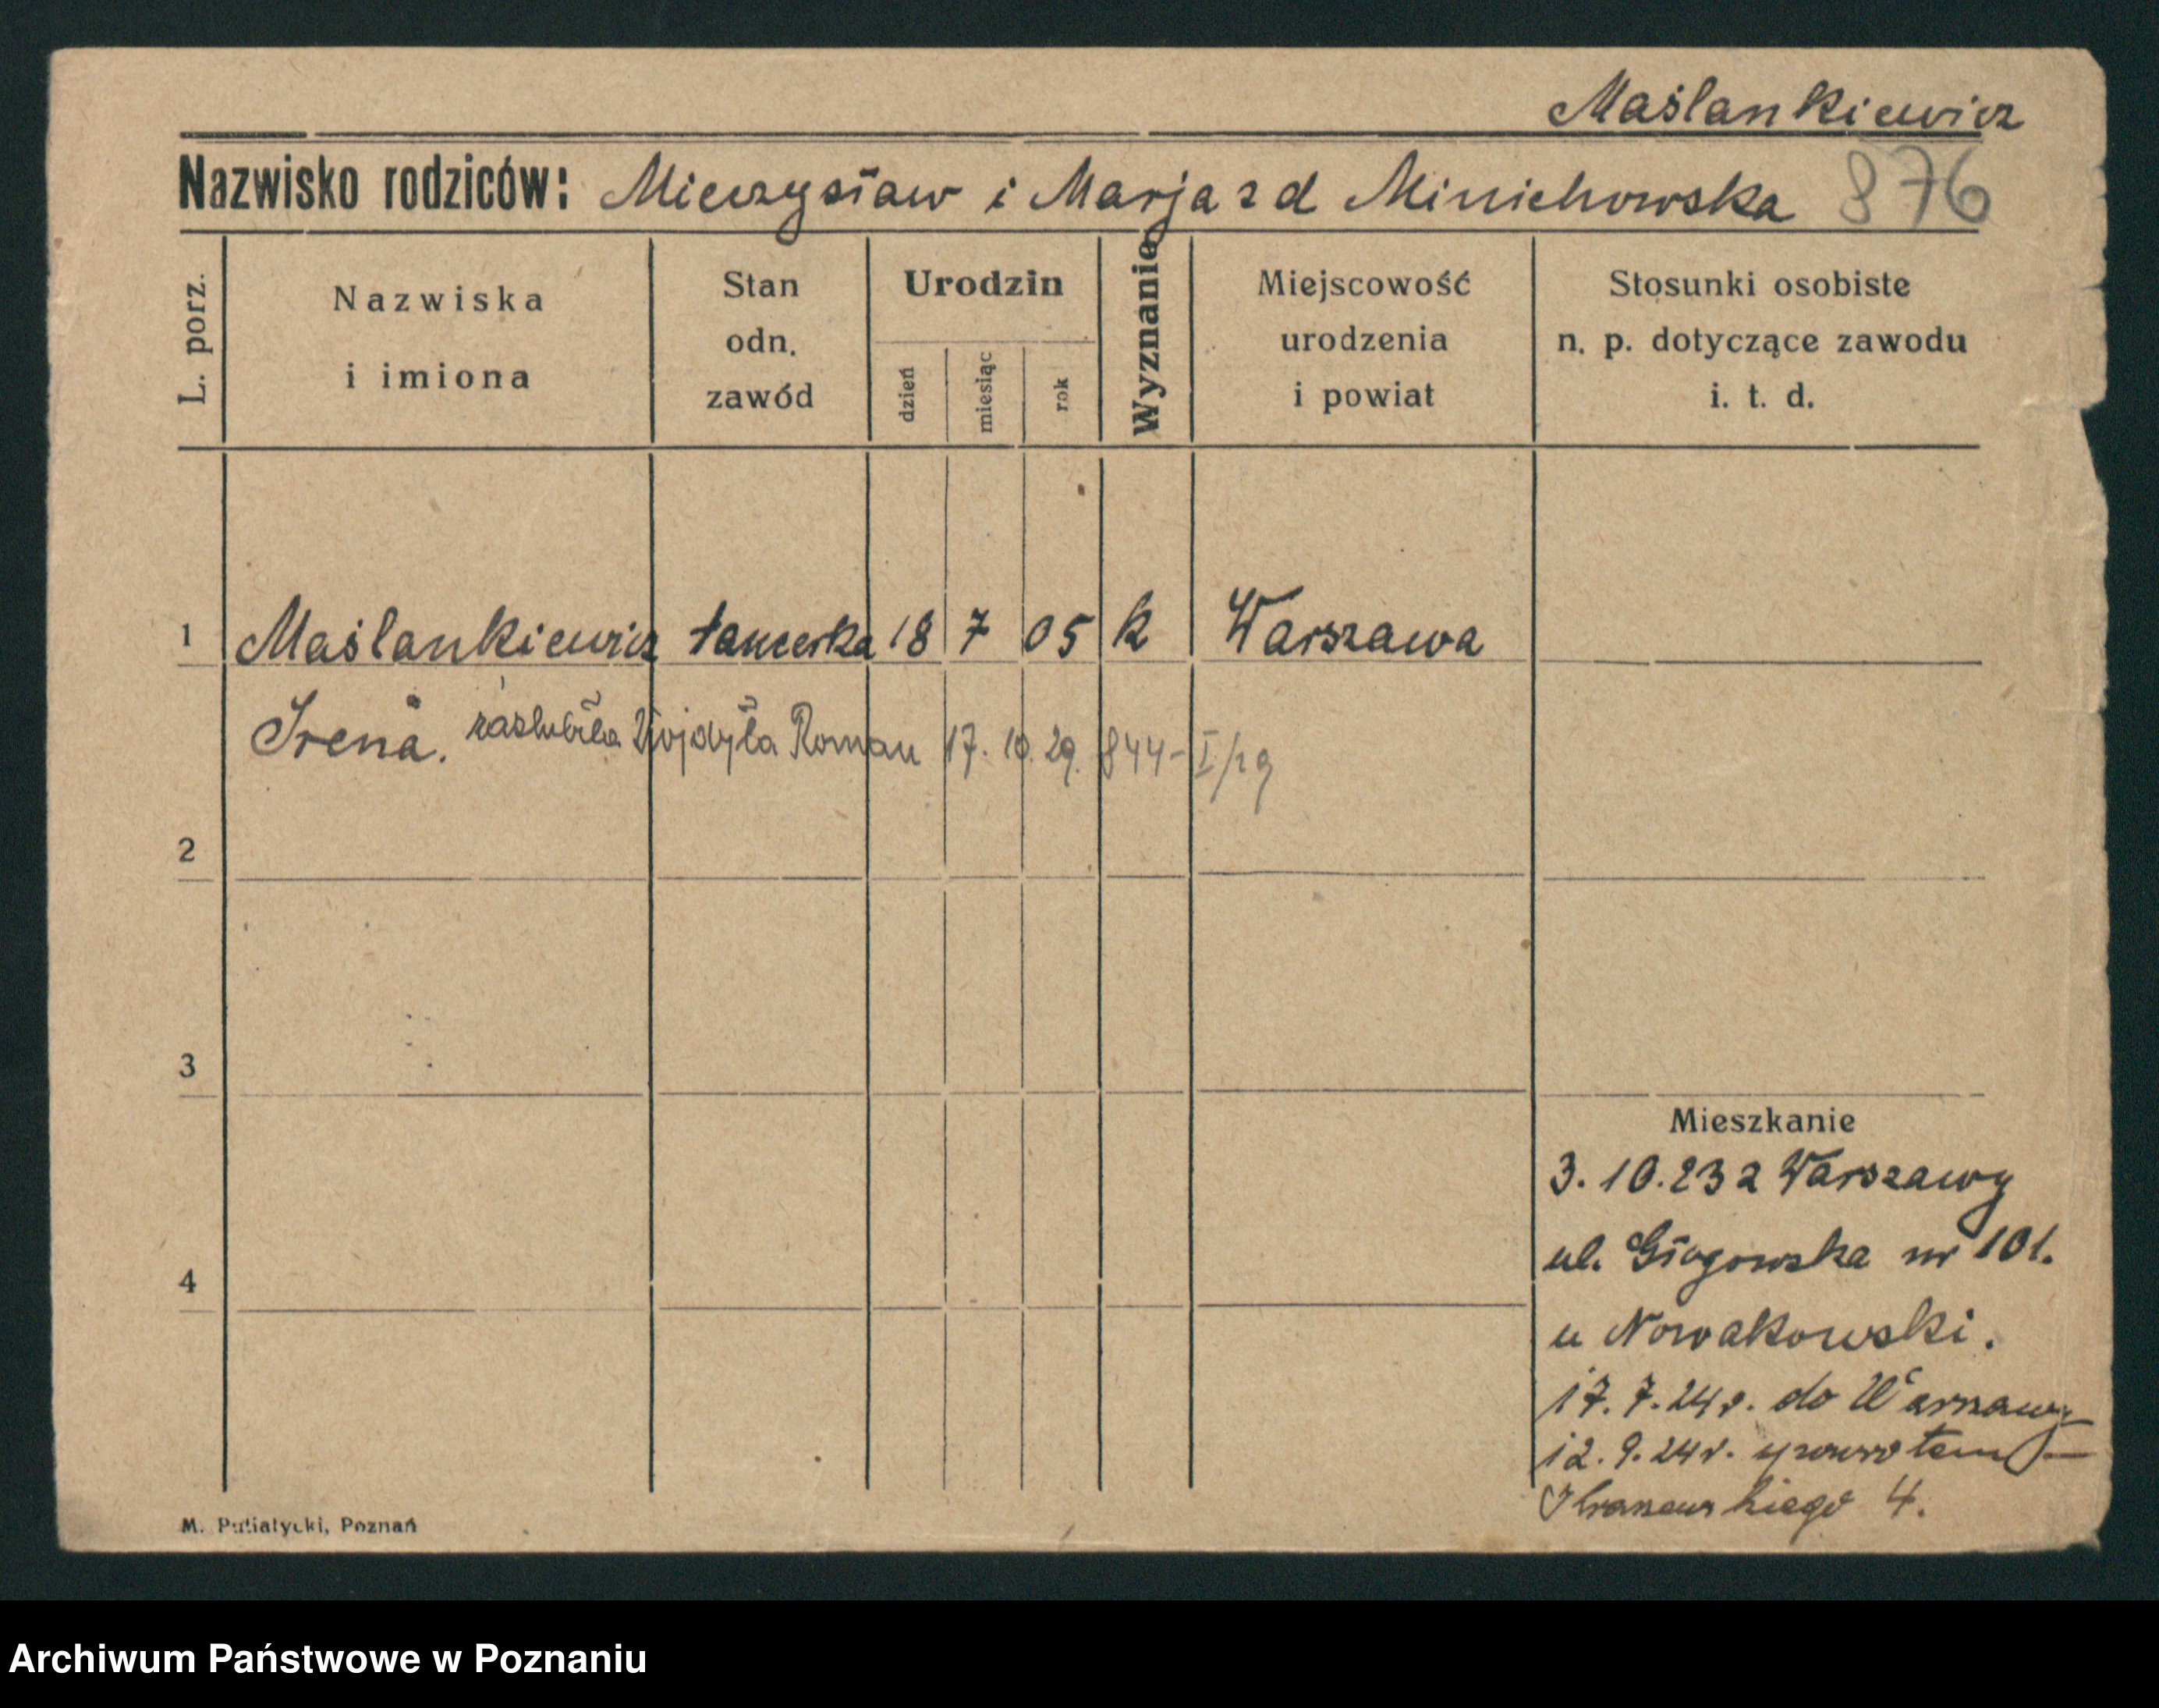 Maślankiewicz
Nazwisko rodziców: Mieczysław i Marja z d Minichowska 876
L. porz.
Nazwiska
i imiona
Stan
odn.
zawód
Urodzin
dzień
miesiąc
rok
Wyznanie
Miejscowość
urodzenia
i powiat
Stosunki osobiste
n. p. dotyczące zawodu
i. t. d.
1 Maślankiewicz tancerka 18 7 05 k Warszawa
Irena. zaślubiła Wojdyła Roman 17. 10. 29. 844-I/29
2
3
4
Mieszkanie
3. 10. 23 z Warszawy
ul. Głogowska nr 101.
u Nowakowski.
17. 7. 24 r. do Warszawy
12. 9. 24 r. z powrotem
Kraszewskiego 4.
M. Putiatycki, Poznań
Archiwum Państwowe w Poznaniu